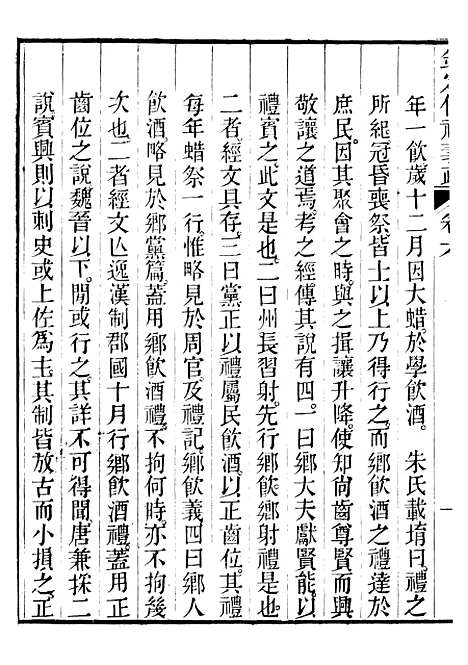 年一飲歲十二月因大蜡於學飲酒。　朱氏載堉曰。禮之
所紀冠昏喪祭皆士以上乃得行之。而鄉飲酒之禮達於
庶民。因其聚會之時。與之揖讓升降。使知尙齒尊賢而興
敬讓之道焉。考之經傳其說有四。一曰鄉大夫獻賢能。以
禮賓之。此文是也。二曰州長習射。先行鄉飲。鄉射禮是也。
二者經文具存。三曰黨正以禮屬民飲酒。以正齒位。其禮
每年蜡祭一行。惟略見於周官及禮記鄉飲義。四曰鄉人
飲酒略見於鄉黨篇。蓋用鄉飲酒禮。不拘何時。亦不拘幾
次也。二者經文亾逸。漢制郡國十月行鄉飲酒禮。蓋用正
齒位之說。魏晉以下。閒或行之。其詳不可得聞。唐兼採二
說。賓興則以刺史或上佐爲主。其制皆放古而小損之。正